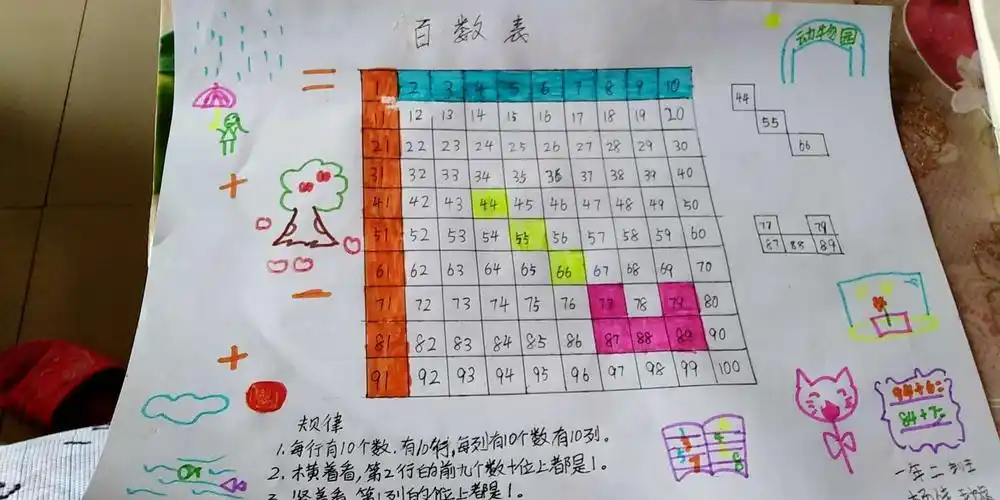 百数表
动物园
1 2 3 4 5 6 7 8 9 10
11 12 13 14 15 16 17 18 19 20
21 22 23 24 25 26 27 28 29 30
31 32 33 34 35 36 37 38 39 40
41 42 43 44 45 46 47 48 49 50
51 52 53 54 55 56 57 58 59 60
61 62 63 64 65 66 67 68 69 70
71 72 73 74 75 76 77 78 79 80
81 82 83 84 85 86 87 88 89 90
91 92 93 94 95 96 97 98 99 100
44
55
66
77 79
87 88 89
规律
1.每行有10个数.有10行,每列有10个数有10列。
2.横着看,第2行的前九个数十位上都是1。
3.竖着看,第1列的个位上都是1。
94+6=
一年二班